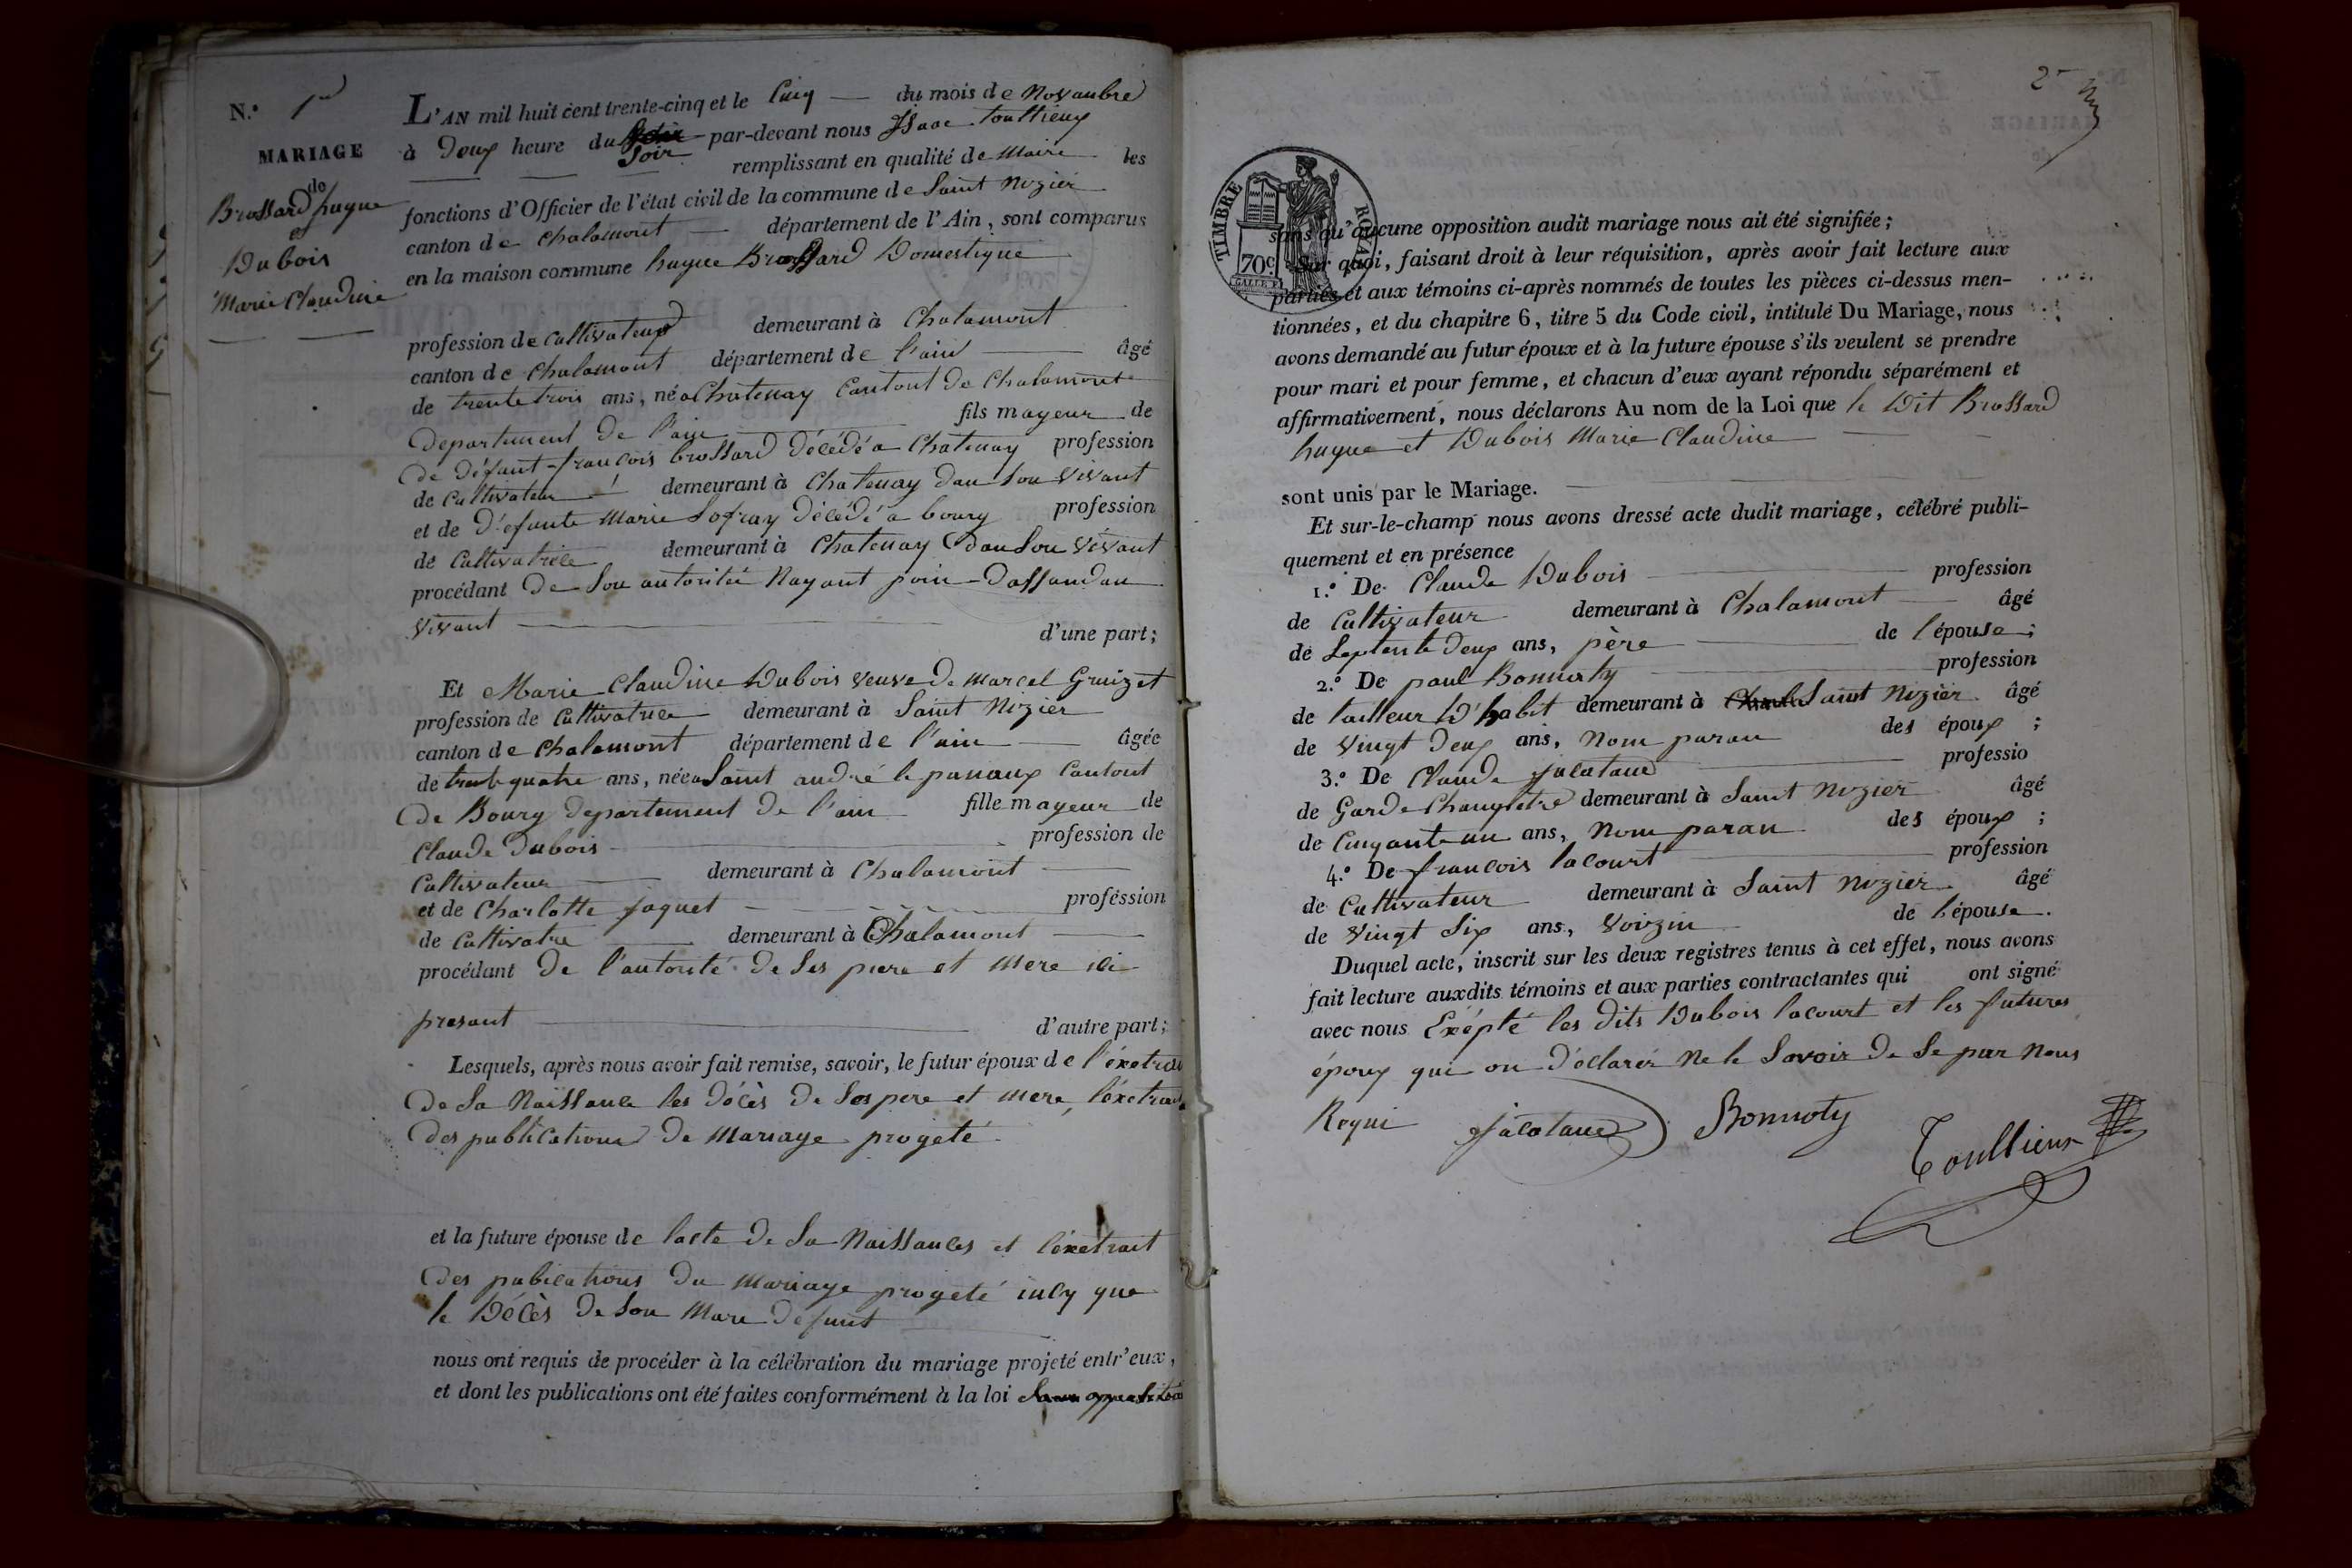 N.° 1er
MARIAGE
de
Brossard hugue
et
Dubois
Marie Claudine
L'AN mil huit cent trente-cinq et le Cinq du mois de Novanbre
à Deux heure du Soir par-devant nous Isaac Toullieux
remplissant en qualité de Maire les
fonctions d'Officier de l'état civil de la commune de Saint Nizier
canton de Chalamont département de l'Ain, sont comparus
en la maison commune hugue Brossard Domestique
profession de Cultivateur demeurant à Chalamont
canton de Chalamont département de l'ain âgé
de trente trois ans, né a Chatenay Cantont de Chalamont
Departement de l'ain fils mayeur de
De défunt françois brossard Décédé a Chatenay profession
de Cultivateur demeurant à Chatenay Dan Son Vivant
et de D'efunte Marie Sofray Décédé a bourg profession
de Cultivatrice demeurant à Chatenay Dan Son Vivant
procédant De Son autorité Nayant poin Dassandan
Vivant d'une part;
Et Marie Claudine Dubois Veuve De Marcel Gruizet
profession de Cultivatrice demeurant à Saint Nizier
canton de Chalamont département de l'ain âgée
de trente quatre ans, née a Saint andré le panaux Cantont
De Bourg Departement De l'ain fille mayeur de
Claude Dubois profession de
Cultivateur demeurant à Chalamont
et de Charlotte Jaquet profession
de Cultivatre demeurant à Chalamont
procédant De l'autorité De Ses piere et Mere ici
presant d'autre part;
Lesquels, après nous avoir fait remise, savoir, le futur époux de l'éxetrai
De Sa Naissance les Décès De Ses pere et mere, l'éxetrait
Des publications De Mariage progeté
et la future épouse de lacte De Sa Naissances et l'éxetrait
Des publications Du Mariage progeté incy que
le Décès De Son Mare Defunt
nous ont requis de procéder à la célébration du mariage projeté entr'eux,
et dont les publications ont été faites conformément à la loi
2e
TIMBRE ROYAL
70c.
sans qu'aucune opposition audit mariage nous ait été signifiée;
Sur quoi, faisant droit à leur réquisition, après avoir fait lecture aux
parties et aux témoins ci-après nommés de toutes les pièces ci-dessus men-
tionnées, et du chapitre 6, titre 5 du Code civil, intitulé Du Mariage, nous
avons demandé au futur époux et à la future épouse s'ils veulent se prendre
pour mari et pour femme, et chacun d'eux ayant répondu séparément et
affirmativement, nous déclarons Au nom de la Loi que le Dit Brossard
hugue et Dubois Marie Claudine
sont unis par le Mariage.
Et sur-le-champ nous avons dressé acte dudit mariage, célébré publi-
quement et en présence
1.° De Claude Dubois profession
de Cultivateur demeurant à Chalamont âgé
de Septente Deux ans, père de l'épouse;
2.° De paul Bonnoty profession
de tailleur D'habit demeurant à Saint Nizier âgé
de Vingt Deux ans, Nom paran des époux;
3.° De Claude Jacotaud professio
de Garde Champetre demeurant à Saint Nizier âgé
de Cinquante un ans, Nom paran des époux;
4.° De françois lacourt profession
de Cultivateur demeurant à Saint Nizier âgé
de Vingt Six ans, Voizin de l'épouse.
Duquel acte, inscrit sur les deux registres tenus à cet effet, nous avons
fait lecture auxdits témoins et aux parties contractantes qui ont signé
avec nous Exépté les Dits Dubois lacourt et les futures
époux qui on D'éclarér Ne le Savoir De Se par Nous
Requi Jacotaud Bonnoty Toullieux